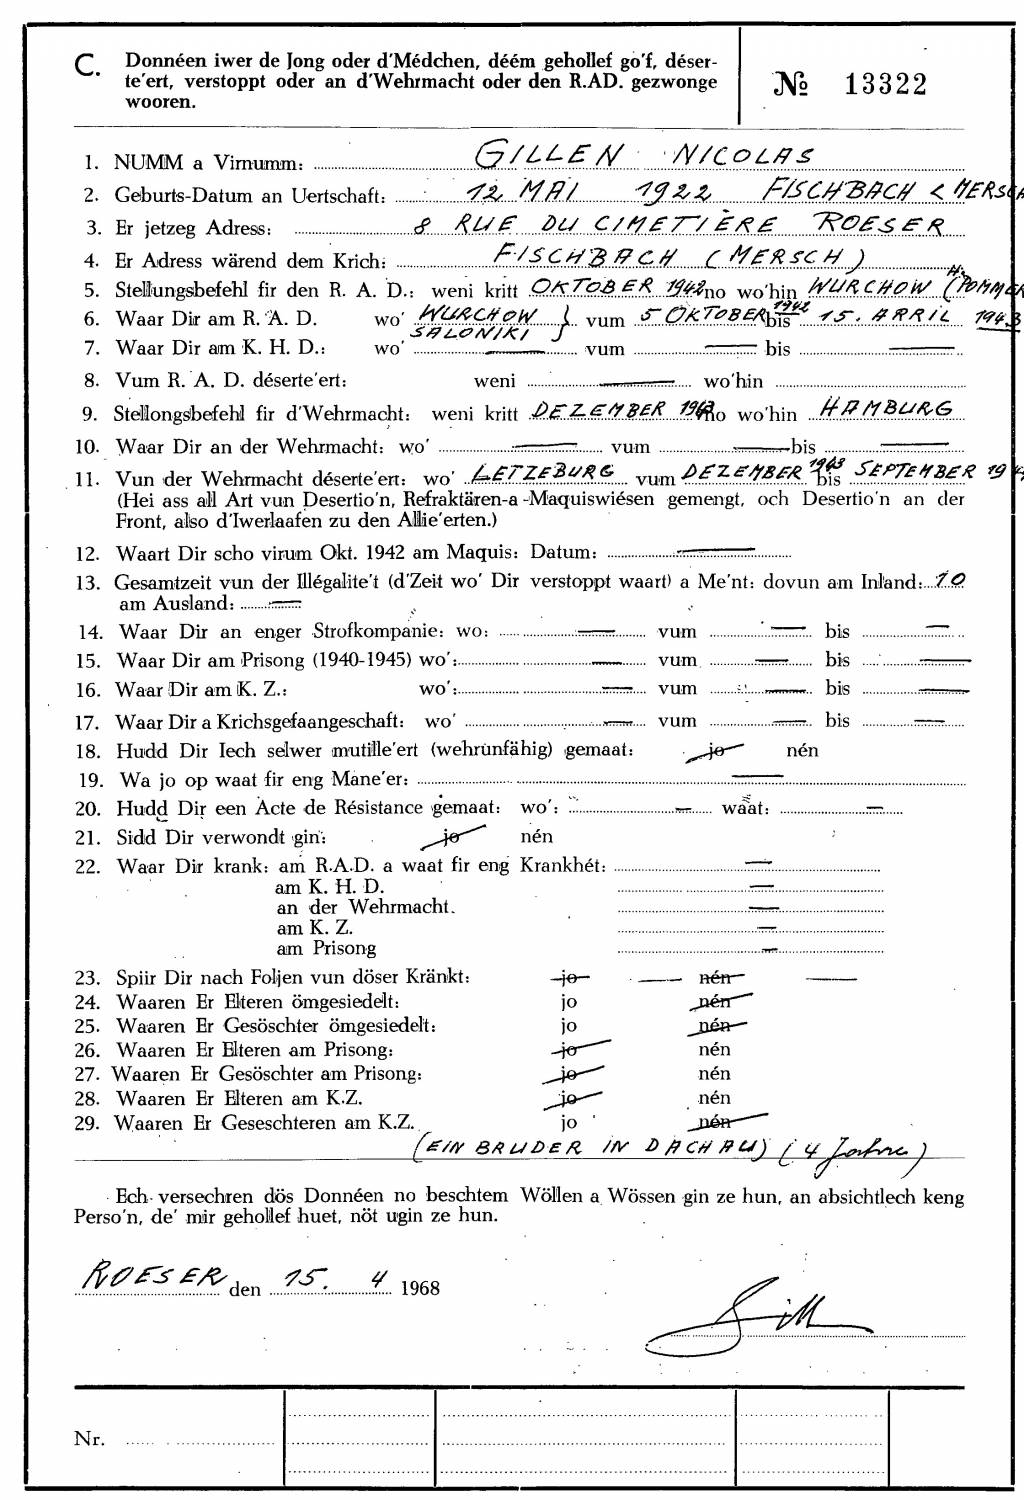 C. Donnéen iwer de Jong oder d'Médchen, déém gehollef go'f, déser-
te'ert, verstoppt oder an d'Wehrmacht oder den R.AD. gezwonge
wooren.
№ 13322
1. NUMM a Virnumm: GILLEN NICOLAS
2. Geburts-Datum an Uertschaft: 12 MAI 1922 FISCHBACH < MERSCH
3. Er jetzeg Adress: 8 RUE DU CIMETIÈRE ROESER
4. Er Adress wärend dem Krich: FISCHBACH (MERSCH)
5. Stellungsbefehl fir den R. A. D.: weni kritt OKTOBER 1942 no wo'hin WURCHOW (H. POMMER
6. Waar Dir am R. A. D. wo' WURCHOW SALONIKI } vum 5 OKTOBER 1942 bis 15. APRIL 1943
7. Waar Dir am K. H. D.: wo' — vum — bis —
8. Vum R. A. D. déserte'ert: weni — wo'hin
9. Stellongsbefehl fir d'Wehrmacht: weni kritt DEZEMBER 1943 no wo'hin HAMBURG
10. Waar Dir an der Wehrmacht: wo' — vum — bis —
11. Vun der Wehrmacht déserte'ert: wo' LETZEBURG vum DEZEMBER 1943 bis SEPTEMBER 194
(Hei ass all Art vun Desertio'n, Refraktären-a-Maquiswiésen gemengt, och Desertio'n an der
Front, also d'Iwerlaafen zu den Allie'erten.)
12. Waart Dir scho virum Okt. 1942 am Maquis: Datum: —
13. Gesamtzeit vun der Illégalite't (d'Zeit wo' Dir verstoppt waart) a Me'nt: dovun am Inland: 10
am Ausland: —
14. Waar Dir an enger Strofkompanie: wo: — vum — bis —
15. Waar Dir am Prisong (1940-1945) wo': — vum — bis —
16. Waar Dir am K. Z.: wo': — vum — bis —
17. Waar Dir a Krichsgefaangeschaft: wo' — vum — bis —
18. Hudd Dir Iech selwer mutille'ert (wehrunfähig) gemaat: jo nén
19. Wa jo op waat fir eng Mane'er: —
20. Hudd Dir een Acte de Résistance gemaat: wo': — waat: —
21. Sidd Dir verwondt gin: jo nén
22. Waar Dir krank: am R.A.D. a waat fir eng Krankhét: —
am K. H. D. —
an der Wehrmacht. —
am K. Z. —
am Prisong —
23. Spiir Dir nach Foljen vun döser Kränkt: jo — nén —
24. Waaren Er Elteren ömgesiedelt: jo nén
25. Waaren Er Gesöschter ömgesiedelt: jo nén
26. Waaren Er Elteren am Prisong: jo nén
27. Waaren Er Gesöschter am Prisong: jo nén
28. Waaren Er Elteren am K.Z. jo nén
29. Waaren Er Geseschteren am K.Z. jo nén
(EIN BRUDER IN DACHAU) (4 Jahre)
Ech versechren dös Donnéen no beschtem Wöllen a Wössen gin ze hun, an absichtlech keng
Perso'n, de' mir gehollef huet, nöt ugin ze hun.
ROESER den 15. 4 1968
Gill
Nr.